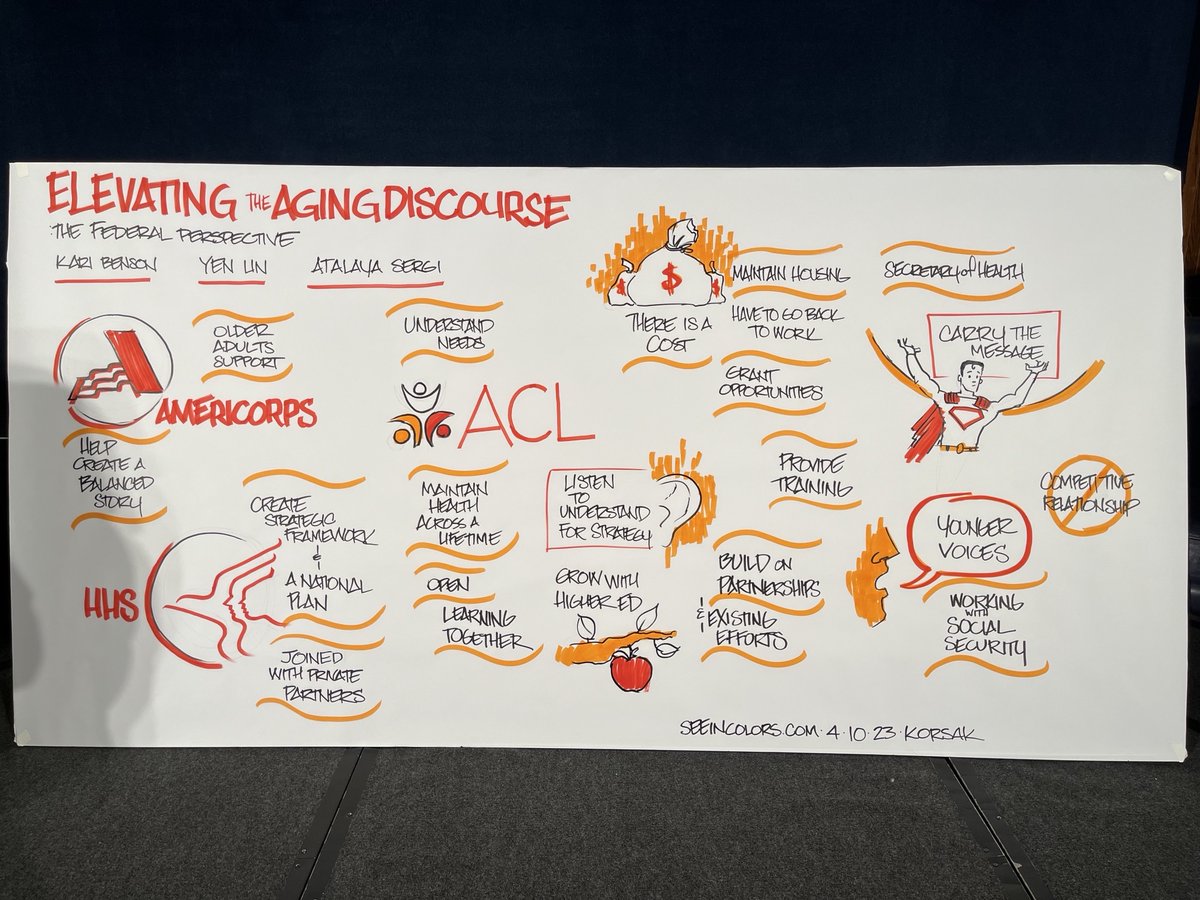 ELEVATING THE AGING DISCOURSE
THE FEDERAL PERSPECTIVE
KARI BENSON YEN LIN ATALAYA SERGI
OLDER
ADULTS
SUPPORT
AMERICORPS
HELP
CREATE A
BALANCED
STORY
HHS
CREATE
STRATEGIC
FRAMEWORK
&
A NATIONAL
PLAN
JOINED
WITH PRIVATE
PARTNERS
UNDERSTAND
NEEDS
ACL
MAINTAIN
HEALTH
ACROSS A
LIFETIME
OPEN
LEARNING
TOGETHER
LISTEN
TO
UNDERSTAND
FOR STRATEGY
GROW WITH
HIGHER ED
$ $ $
THERE IS A
COST
MAINTAIN HOUSING
HAVE TO GO BACK
TO WORK
GRANT
OPPORTUNITIES
PROVIDE
TRAINING
BUILD ON
PARTNERSHIPS
& EXISTING
EFFORTS
SECRETARY of HEALTH
CARRY THE
MESSAGE
COMPETITIVE
RELATIONSHIP
YOUNGER
VOICES
WORKING
WITH
SOCIAL
SECURITY
SEEINCOLORS.COM · 4 · 10 · 23 · KORSAK